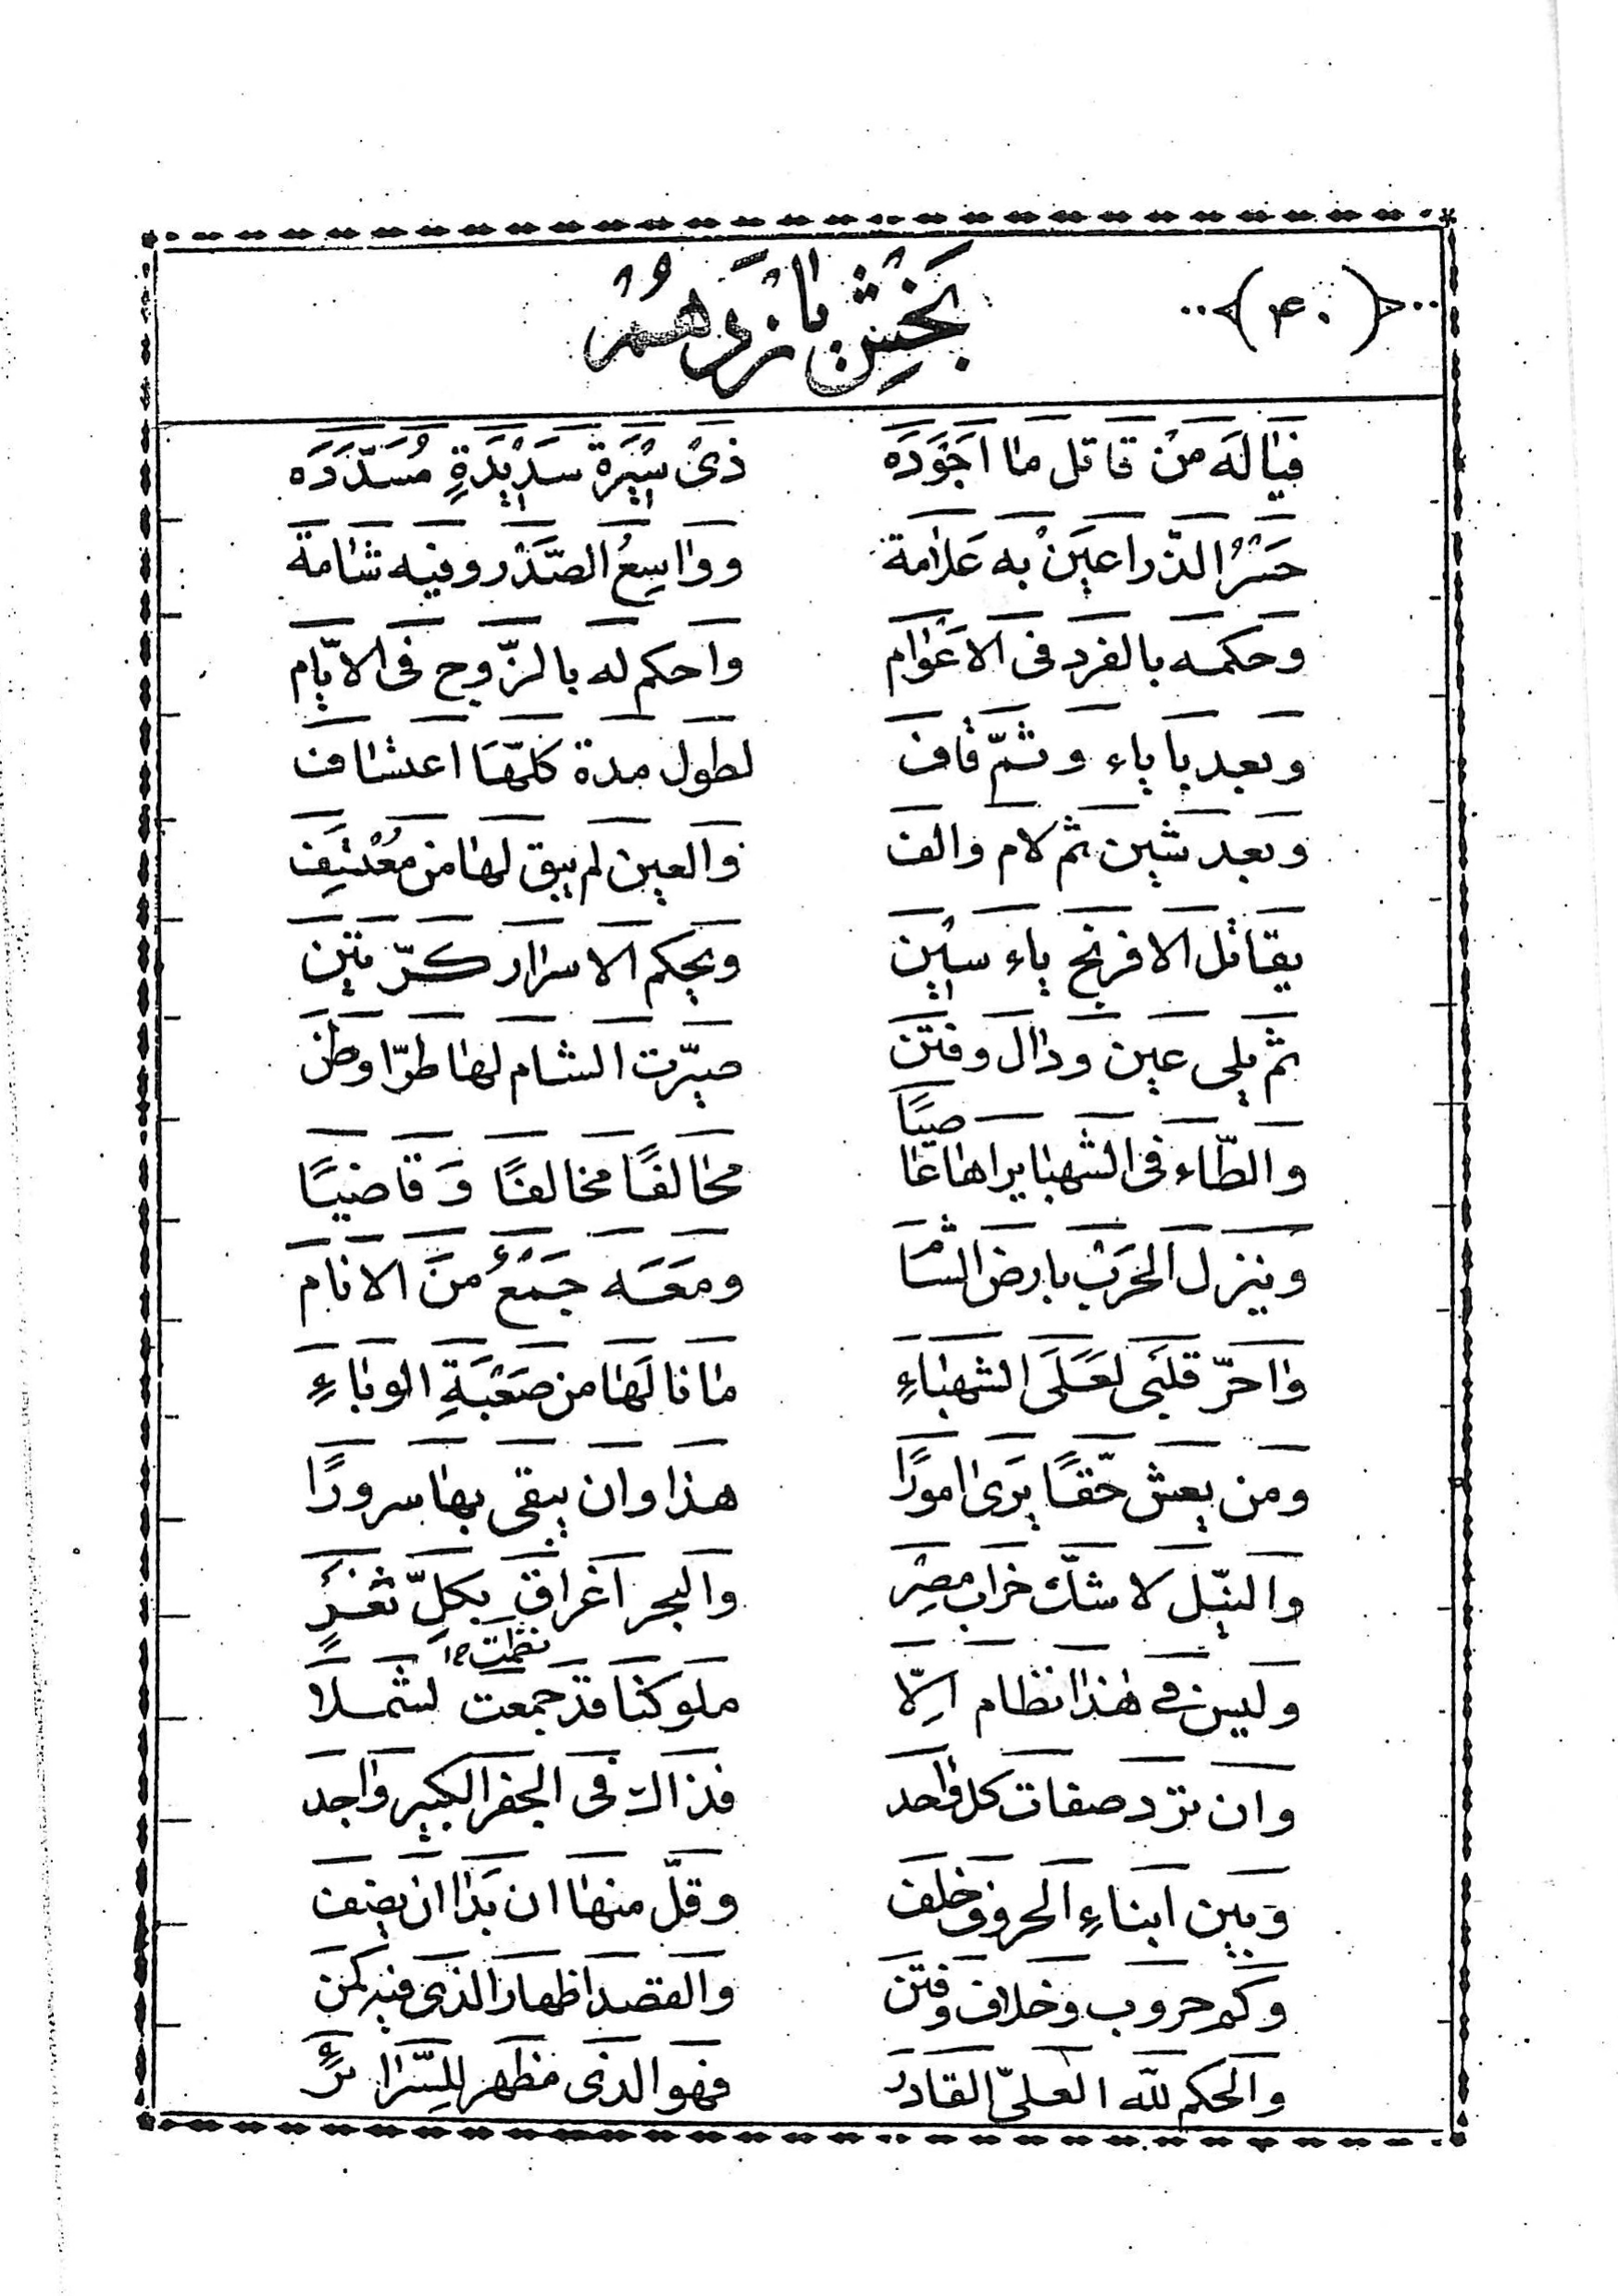 (۴۰)
بَخْشِ يٰازْدَهُمْ
فيٰا لَه مَنْ قاتل مٰا اَجْوَدَه ذىْ سٖيْرَةٍ سَدٖيْدَةٍ مُسَدَّدَه
حَسَنُ الذّراعَيَنْ به عَلاٰمة وواسِعُ الصَّدْر وفيه شٰامَة
وحكمه بالفرد فى الاعْوٰام واحكم له بالزّوج فى الايّٰام
وبعد با ياء وثمّ قاف لطول مدة كلّهَا اعتسٰاف
وبعد شين ثم لام والف والعين لم يبق لهٰا من مُعْتَنِف
يقاتل الافرنج ياء سٖيْن ويحكم الاسرار كرّتين
ثم يلى عين ودٰال وفتن صيّرت الشام لهٰا طرّا وطن
والطّاء فى الشهبٰا يراهٰا عٰاصيًا مخٰالفًا مخالفًا وَقاضيًا
وينزل الحَرْبْ بارض الشٰام ومَعَه جَمْعُ منَ الانٰام
وٰاحرّ قلبَى لعَلَى الشهبٰاءِ مٰا نالَهٰا من صَعْبَةِ الوبٰاءِ
ومن يعش حَقًّا يَرَى امورًا هذا وان يبقى بهٰا سرورًا
والنّيل لا شكّ خراب مصْرِ والبحر اغراق بكلِّ ثغرٍ
نظمت ١٢
وليس فى هٰذا نظام اِلّا ملوكنٰا قد جمعت لشمـلاً
وان ترد صفات كل وٰاحد فذاك فى الجفر الكبير وٰاجد
وبين ابنٰاءِ الحروف خلف وقلّ منهٰا ان بَدٰا ان يضف
وكم حروب وخلاف وفتن والقصد اظهار الذى فيه كمن
والحكم للّه العلىّ القادر فهو الذى مظهر للسَّرٰائر